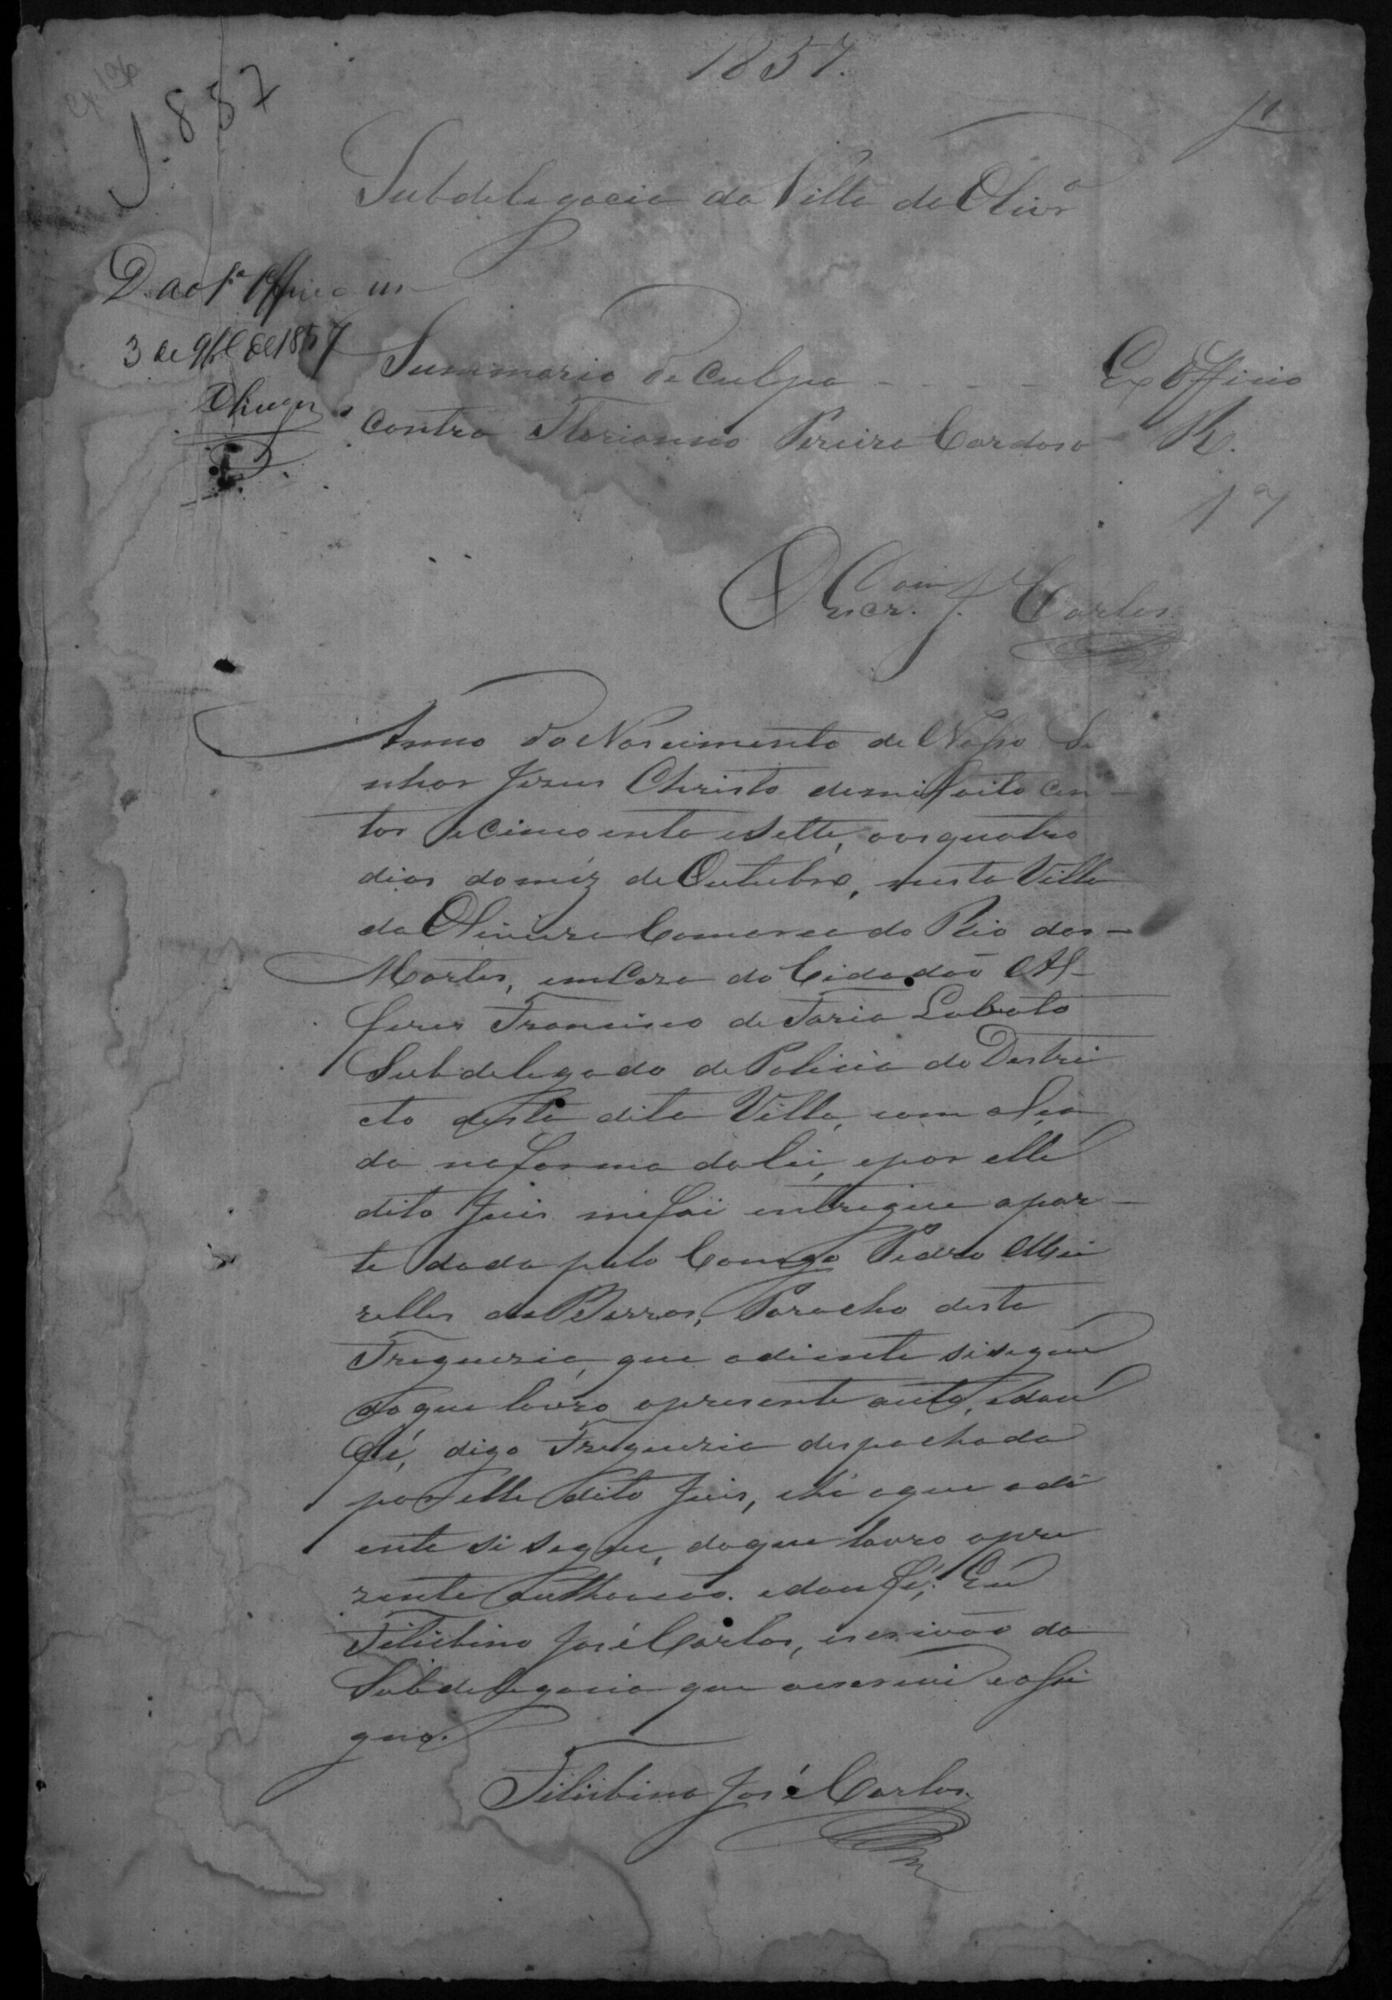 1857.
J. 857
Subdelegacia da Villa da Olivrª
D. ao 1º Officio em
3 de 9bro de 1857
Summario de Culpa - - - Ex Officio
contra Florianno Pereira Cardoso R.
O Escr. J. Carlos
Anno do Nascimento de Nosso Se
nhor Jezus Christo de mil oito cen-
tos e cincoenta e sette, aos quatro
dias do mêz de Outubro, nesta Villa
da Oliveira Comarca do Rio das-
Mortes, em Caza do Cidadão Al-
feres Francisco de Faria Lobato
Subdelegado de Policia do Destri
cto desta dita Villa, com alçá
da na forma da lei, e por elle
dito Juis me foi entregue a par-
te dada pelo Conego Pedro Mei
relles de Barros, Parocho desta
Freguezia, que adiente si segue
do que lavro o presente auto, e dou
fé, digo Freguezia despachada
por elle dito Juis, e hé a que adi
ente si segue, do que lavro o pre
zente authoamº. e dou fé; Eu
Felisbino José Carlos, escrivão da
Subdelegacia que o escrevi e assi
gno.
Felisbino José Carlos